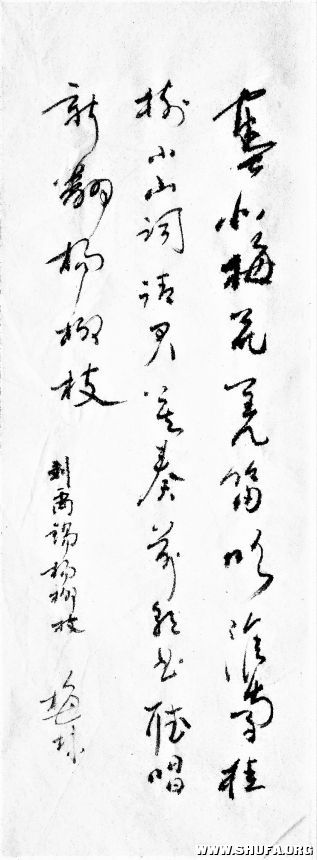 塞北梅花羌笛吹淮南桂
樹小山詞請君莫奏前朝曲聽唱
新翻楊柳枝
劉禹錫楊柳枝
WWW.SHUFA.ORG